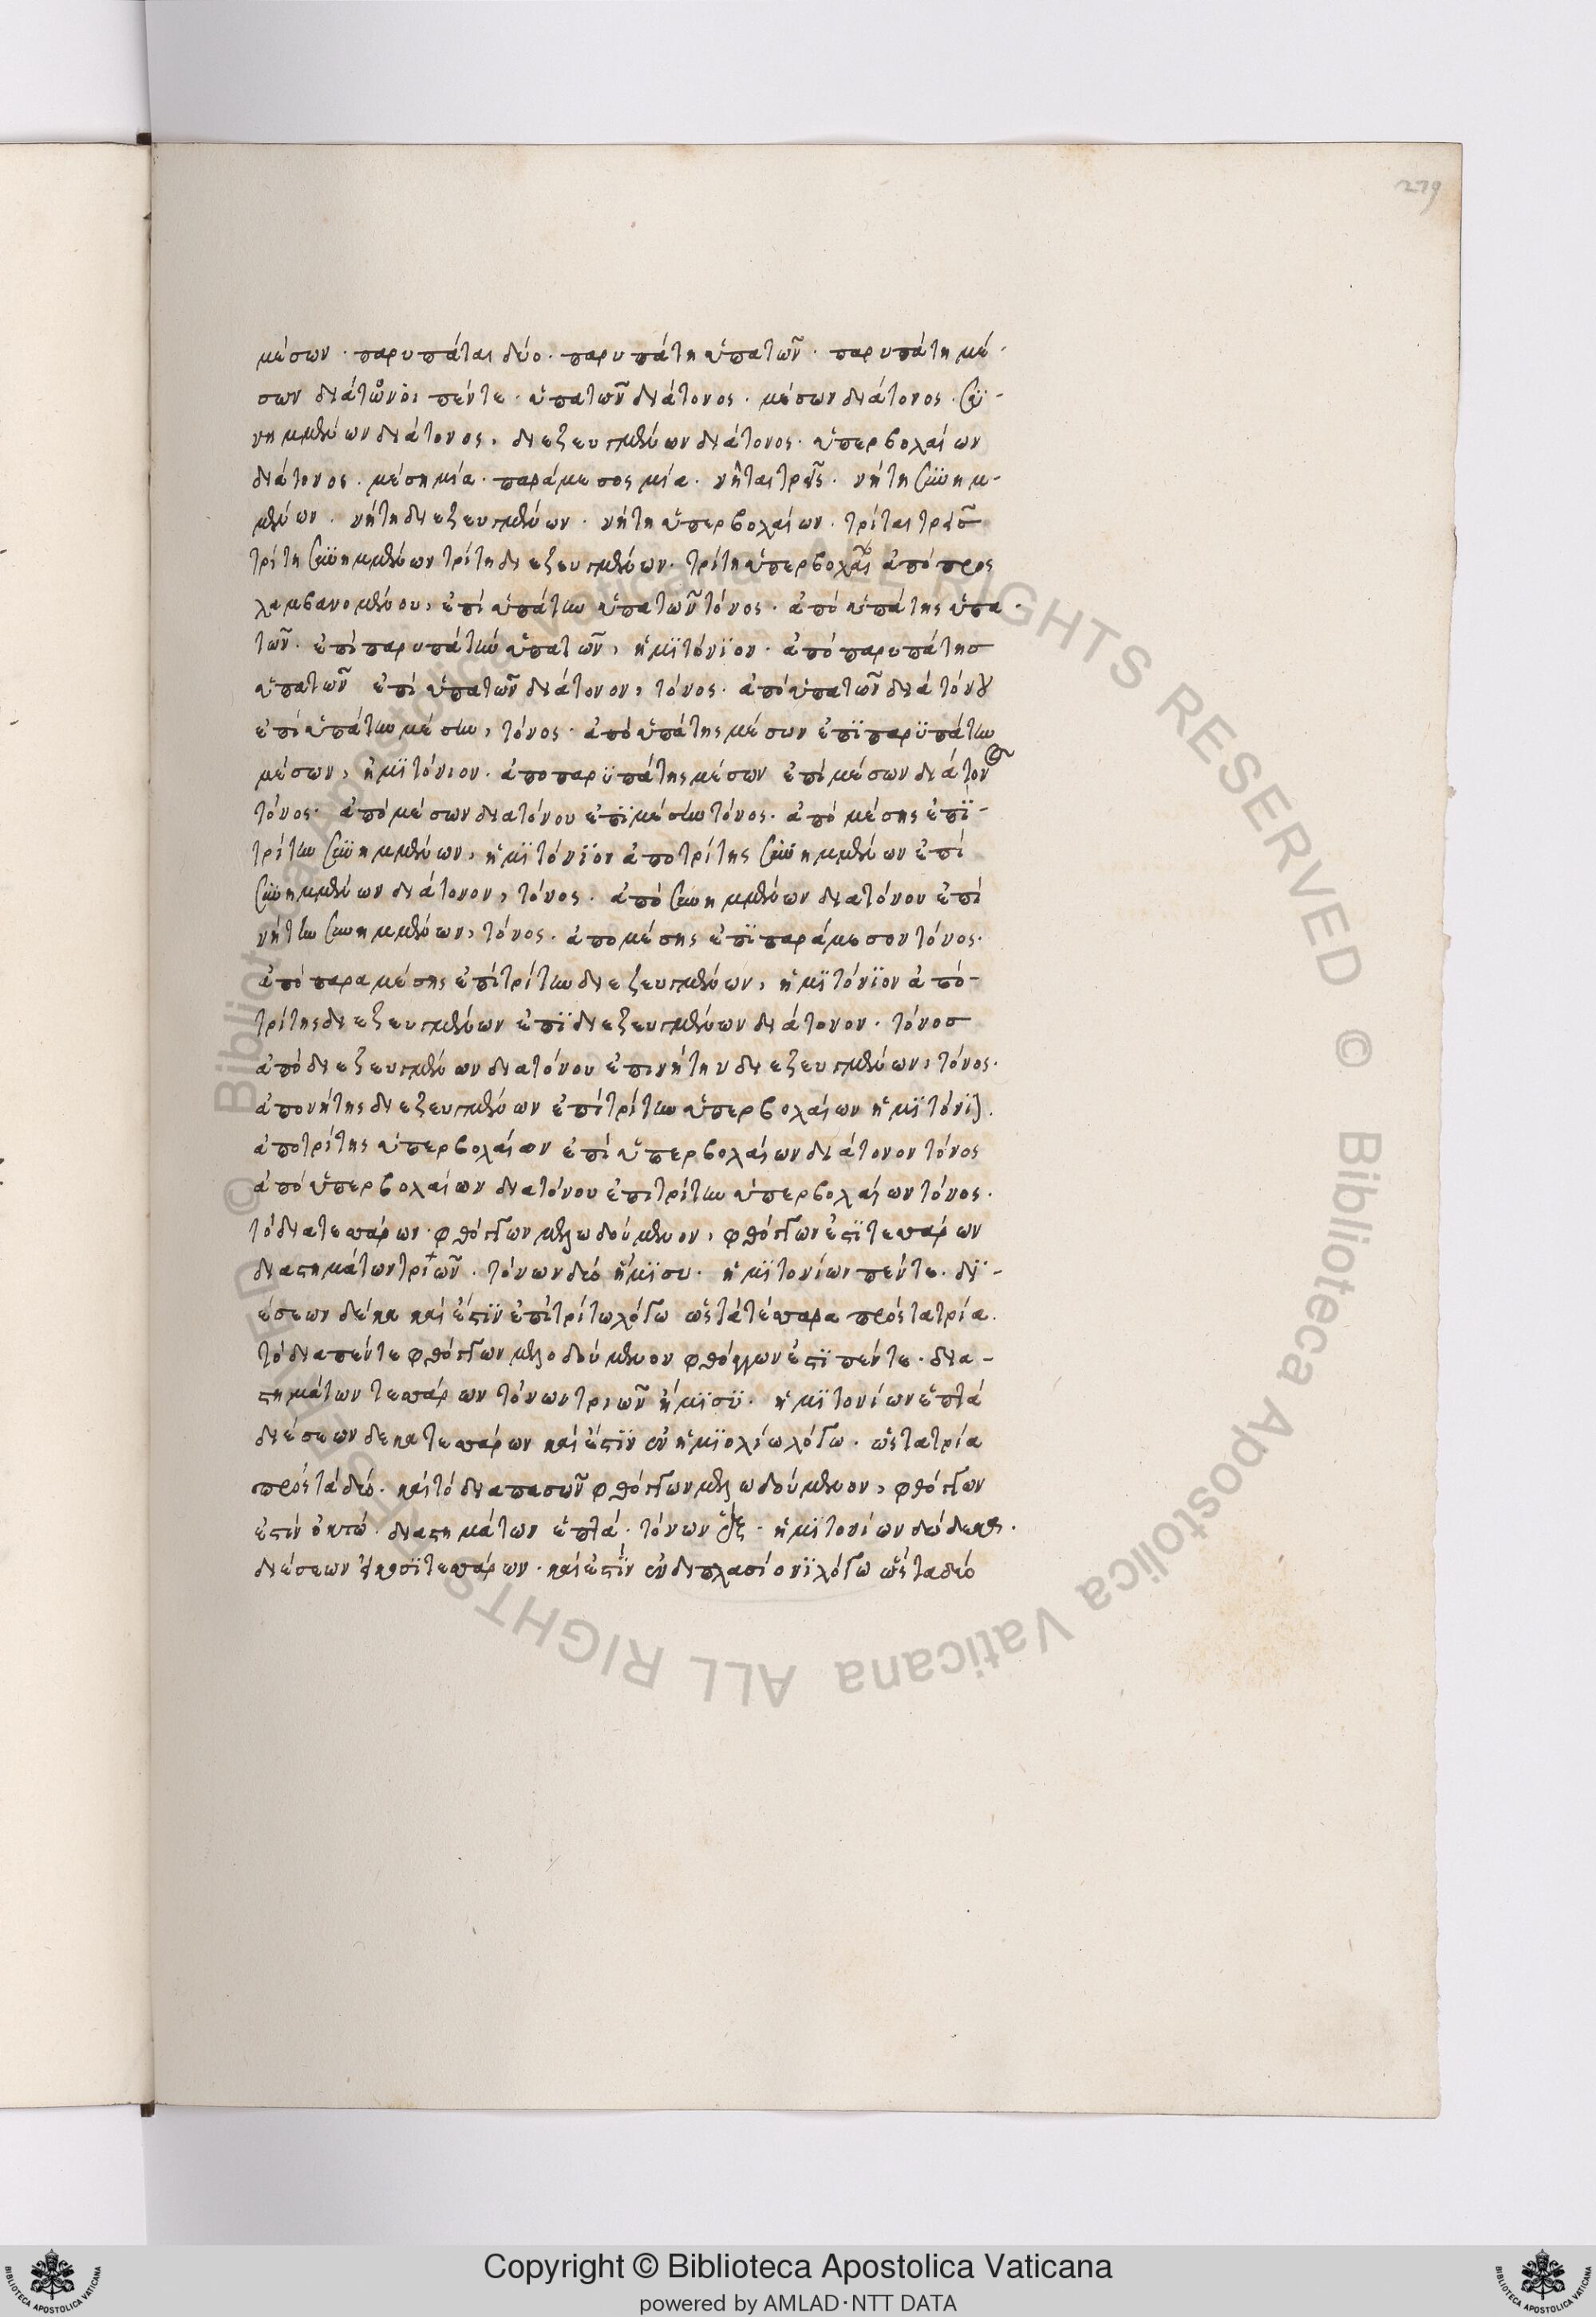 279
μέσων · παρυπάται δύο · παρυπάτη ὑπατῶν · παρυπάτη μέ-
σων διάτονοι πέντε · ὑπατῶν διάτονος · μέσων διάτονος · συ-
νημμένων διάτονος, διεζευγμένων διάτονος · ὑπερβολαίων
διάτονος · μέση μία · παράμεσος μία · νῆται τρεῖς · νήτη συνημ-
μένων · νήτη διεζευγμένων · νήτη ὑπερβολαίων · τρίται τρεῖς
τρίτη συνημμένων τρίτη διεζευγμένων · τρίτη ὑπερβολαί ἀπό προς
λαμβανομένου, ἐπί ὑπάτην ὑπατῶν τόνος · ἀπό ὑπάτης ὑπα-
τῶν · ἐπί παρυπάτην ὑπατῶν, ἡμϊτόνϊον · ἀπό παρυπάτησ
ὑπατῶν ἐπί ὑπατῶν διάτονον, τόνος · ἀπό ὑπατῶν διατόνου
ἐπί ὑπάτην μέσην, τόνος · ἀπό ὑπάτης μέσων ἐπϊ παρϋπάτην
μέσων, ἡμϊτόνιον · ἀπο παρϋπάτης μέσων ἐπί μέσων διάτον
τόνος · ἀπό μέσων διατόνου ἐπϊ μέσην τόνος · ἀπό μέσης ἐπϊ-
τρίτην συνημμένων, ἡμϊτόνϊον ἀπο τρίτης συνημμένων ἐπί
συνημμένων διάτονον, τόνος · ἀπό συνημμένων διατόνου ἐπί
νήτην συνημμένων, τόνος · ἀπο μέσης ἐπϊ παράμεσον τόνος ·
ἀπό παραμέσης ἐπί τρίτην διεζευγμένων, ἡμϊτόνϊον ἀπό-
τρίτης διεζευγμένων ἐπϊ διεζευγμένων διάτονον · τόνοσ
ἀπό διεζευγμένων διατόνου ἐπι νήτην διεζευγμένων, τόνος ·
ἀπο νήτης διεζευγμένων ἐπί τρίτην ὑπερβολαίων ἡμϊτόνϊ
ἀπο τρίτης ὑπερβολαίων ἐπί ὑπερβολαίων διάτονον τόνος
ἀπό ὑπερβολαίων διατόνου ἐπι τρίτην ὑπερβολαίων τόνος ·
τό διατεσσάρων · φθόγγων μελωδούμενον, φθόγγων ἐστϊ τεσσάρων
διαστημάτων τριῶν · τόνων δύο ἡμϊσυ · ἡμϊτονίων πέντε · δϊ-
έσεων δέκα καί ἐστϊν ἐπίτρίτω λόγω ὡς τά τέσσαρα πρός τα τρία ·
τό διαπέντε φθόγγων μελοδούμενον φθόγγων ἐστϊ πέντε · δια-
στημάτων τεσσάρων τόνων τριῶν ἡμϊσϋ · ἡμϊτονίων ἑπτά
διέσεων δεκατεσσάρων καί ἐστϊν ἐν ἡμϊολίω λόγω · ὡς τα τρία
πρός τά δύο · καί τό διαπασῶν φθόγγων μελωδούμενον, φθόγγων
ἐστίν ὀκτώ · διαστημάτων ἑπτά · τόνων ἕξ · ἡμϊτονίων δώδεκα ·
διέσεων ἰκοσϊτεσσάρων · καί ἐστϊν ἐν διπλασίονϊ λόγω ὡς τα δύο
© Biblioteca Apostolica Vaticana ALL RIGHTS RESERVED © Biblioteca Apostolica Vaticana ALL RIGHTS RESERVED
Copyright © Biblioteca Apostolica Vaticana
powered by AMLAD·NTT DATA
BIBLIOTECA APOSTOLICA VATICANA
BIBLIOTECA APOSTOLICA VATICANA